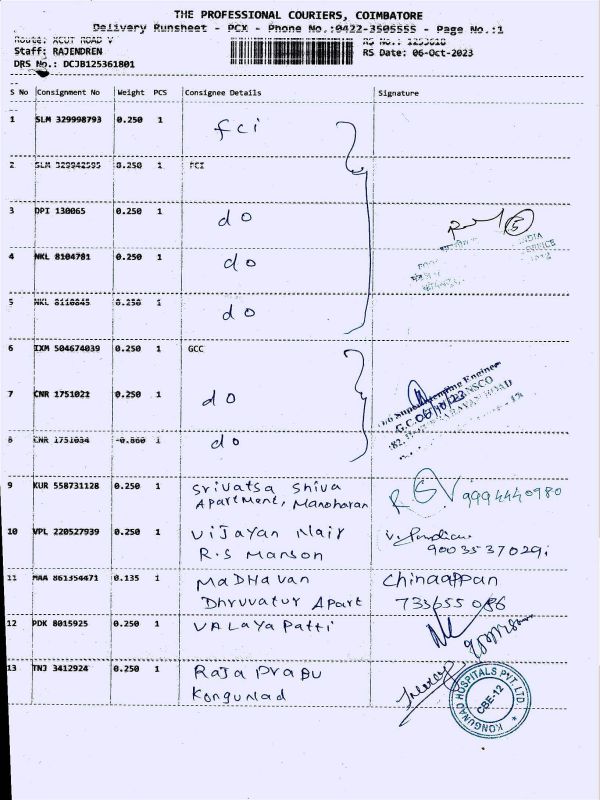 THE PROFESSIONAL COURIERS, COIMBATORE
Delivery Runsheet - PCX - Phone No.:0422-3505555 - Page No.:1
Route: XCUT ROAD V
RS No.: 1253618
Staff: RAJENDREN
RS Date: 06-Oct-2023
DRS No.: DCJB125361801
S No Consignment No Weight PCS Consignee Details Signature
1 SLM 329998793 0.250 1 fci
2 SLM 329942595 0.250 1 FCI
3 DPI 130065 0.250 1 do
4 NKL 8104781 0.250 1 do
5 NKL 8110845 0.250 1 do
5
INDIA
6 IXM 504674039 0.250 1 GCC
7 CNR 1751021 0.250 1 do
8 CNR 1751034 0.860 1 do
Engineer
ROAD
9 KUR 558731128 0.250 1 Srivatsa Shiva
Apartment, Manoharan
9994440980
10 VPL 220527939 0.250 1 Vijayan Nair
R.S Manson
9003537029
11 MAA 861354471 0.135 1 MaDHavan
Dhruvatur Apart
Chinaappan
733655086
12 PDK 8015925 0.250 1 VALayaPatti
13 TNJ 3412924 0.250 1 Raja Prabu
Kongunad
KONGUNAD HOSPITALS PVT. LTD.
CBE-12